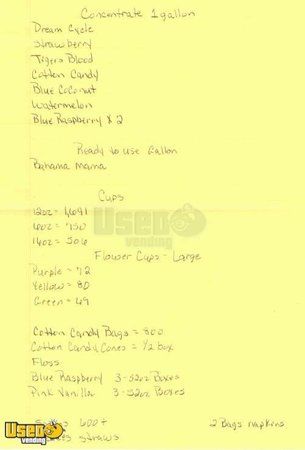 Concentrate 1 gallon
Dream Cycle
Strawberry
Tigers Blood
Cotton Candy
Blue Coconut
Watermelon
Blue Raspberry x 2
Ready to use Gallon
Bahama Mama
Cups
12oz =
6oz = 750
16oz = 506
USED vending
Flower Cups - Large
Purple = 72
Yellow = 80
Green = 69
Cotton Candy Bags = 800
Cotton Candy Cones = 1/2 box
Floss
Blue Raspberry 3-52oz Boxes
Pink Vanilla 3-52oz Boxes
600+
2 Bags napkins
USED vending
straws